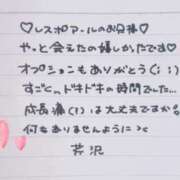 ♡レスポアールのお兄様♡
やっと会えたの嬉しかったです♥
オプションもありがとう(；；)
すごくドキドキの時間でした、
成長痛(！)は大丈夫ですか。
何もありませんように ><
芹沢